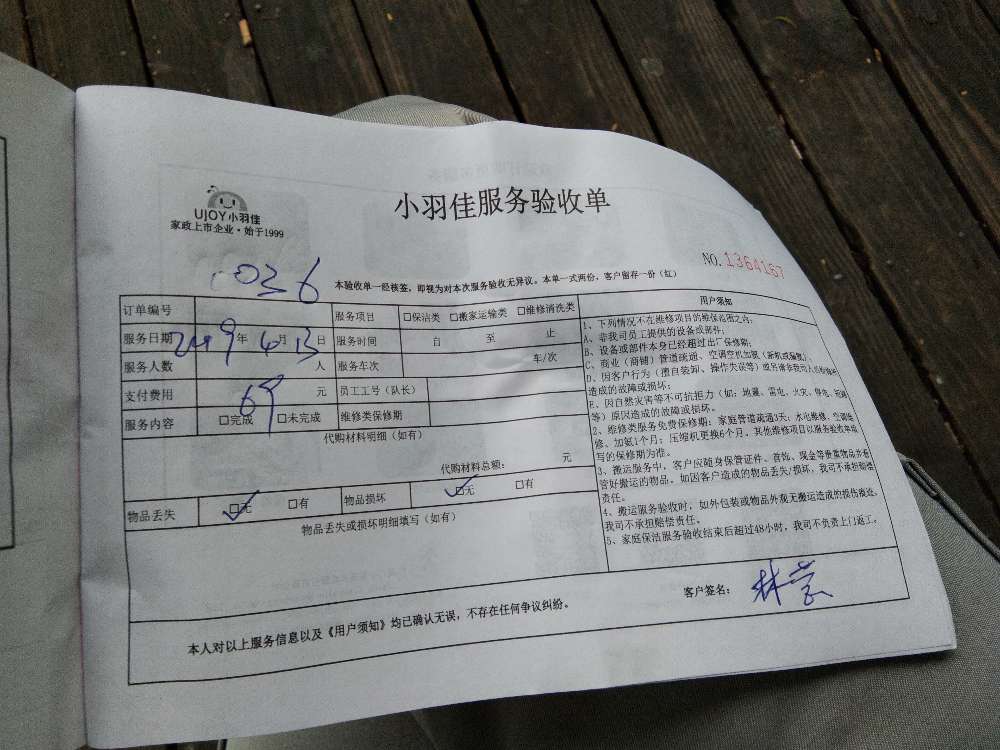 UJOY小羽佳
家政上市企业·始于1999
小羽佳服务验收单
NO.1364167
036
本验收单一经核签，即视为对本次服务验收无异议。本单一式两份，客户留存一份（红）
订单编号 服务项目 □保洁类 □搬家运输类 □维修清洗类
服务日期 2019年6月13日 服务时间 自 至 止
服务人数 人 服务车次 车/次
支付费用 69 元 员工工号（队长）
服务内容 □完成 □未完成 维修类保修期
代购材料明细（如有）
代购材料总额： 元
物品丢失 □无 □有 物品损坏 □无 □有
物品丢失或损坏明细填写（如有）
用户须知
1、下列情况不在维修项目的维保范围之内：
A、非我司员工提供的设备或部件；
B、设备或部件本身已经超过出厂保修期；
C、商业（商铺）管道疏通、空调空机加氨
D、因客户行为（擅自装卸、操作失误等）或
造成的故障或损坏；
E、因自然灾害等不可抗拒力（如：地震、雷电、火灾、
等）原因造成的故障或损坏。
2、维修类服务免费保修期：家庭管道疏通3天，水电维修、空调维
修、加氨1个月；压缩机更换6个月，其他维修项目以服务验收单填
写的保修期为准。
3、搬运服务中，客户应随身保管证件、首饰、现金等贵重物品并看
管好搬运的物品，如因客户造成的物品丢失/损坏，我司不承担赔偿
责任。
4、搬运服务验收时，如外包装或物品外观无搬运造成的损伤痕迹，
我司不承担赔偿责任。
5、家庭保洁服务验收结束后超过48小时，我司不负责上门返工。
本人对以上服务信息以及《用户须知》均已确认无误，不存在任何争议纠纷。
客户签名：林